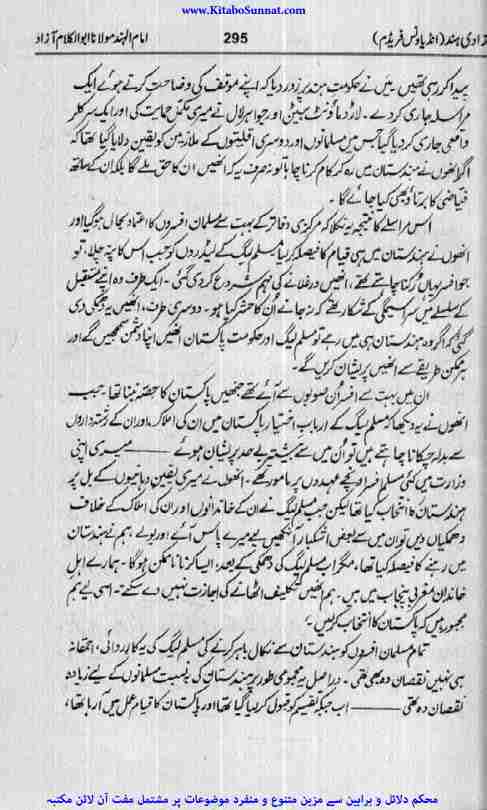 www.KitaboSunnat.com
زادی ہند (انڈیا ونس فریڈم) 295 امام الہند مولانا ابوالکلام آزاد
پیدا کر رہی تھیں۔ میں نے حکومت ہند پر زور دیا کہ اپنے موقف کی وضاحت کرتے ہوئے ایک
مراسلہ جاری کر دے۔ لارڈ ماؤنٹ بیٹن اور جواہر لال نے میری مکمل حمایت کی اور ایک سرکلر
واقعی جاری کر دیا گیا جس میں مسلمانوں اور دوسری اقلیتوں کے ملازمین کو یقین دلایا گیا تھا کہ
اگر انھوں نے ہندستان میں رہ کر کام کرنا چاہا تو نہ صرف یہ کہ انھیں ان کا حق ملے گا بلکہ ان کے ساتھ
فیاضی کا برتاؤ بھی کیا جائے گا۔
اس مراسلے کا نتیجہ یہ نکلا کہ مرکزی دفاتر کے بہت سے مسلمان افسروں کا اعتماد بحال ہو گیا اور
انھوں نے ہندستان میں ہی قیام کا فیصلہ کر لیا۔ مسلم لیگ کے لیڈروں کو جب اس کا پتہ چلا، تو
جو افسر یہاں رکنا چاہتے تھے، انھیں ورغلانے کی مہم شروع کر دی گئی۔ ایک طرف وہ اپنے مستقبل
کے سلسلے میں سراسیمگی کے شکار تھے کہ نہ جانے اُن کا حشر کیا ہو۔ دوسری طرف، انھیں یہ دھمکی دی
گئی کہ اگر وہ ہندستان ہی میں رہے تو مسلم لیگ اور حکومت پاکستان انھیں اپنا دشمن سمجھیں گے اور
ہر ممکن طریقے سے انھیں پریشان کریں گے۔
ان میں بہت سے افسر اُن صوبوں سے آئے تھے جنھیں پاکستان کا حصّہ بننا تھا۔ جب
انھوں نے یہ دیکھا کہ مسلم لیگ کے ارباب اختیار پاکستان میں ان کی املاک اور ان کے رشتہ داروں
سے بدلہ چکانا چاہتے ہیں تو اُن میں سے بیشتر بے حد پریشان ہوئے ——— میری اپنی
وزارت میں کئی مسلم افسر اونچے عہدوں پر مامور تھے۔ انھوں نے میری یقین دہانیوں کے بل پر
ہندستان کا انتخاب کیا تھا لیکن جب مسلم لیگ نے ان کے خاندانوں اور ان کی املاک کے خلاف
دھمکیاں دیں تو ان میں سے بعض اشکبار آنکھیں لیے میرے پاس آئے اور بولے، ہم نے ہندستان
میں رہنے کا فیصلہ کیا تھا، مگر اب مسلم لیگ کی دھمکی کے بعد، ایسا کرنا ناممکن ہو گا۔ ہمارے اہل
خاندان مغربی پنجاب میں ہیں۔ ہم انھیں تکلیف اٹھانے کی اجازت نہیں دے سکتے۔ اسی لیے ہم
مجبور ہیں کہ پاکستان کا انتخاب کر لیں۔
تمام مسلمان افسروں کو ہندستان سے نکال باہر کرنے کی مسلم لیگ کی یہ کارروائی، احمقانہ
ہی نہیں نقصان دہ بھی تھی۔ دراصل یہ مجموعی طور پر ہندستان کی بہ نسبت مسلمانوں کے لیے زیادہ
نقصان دہ تھی ——— اب جبکہ تقسیم کو قبول کر لیا گیا تھا اور پاکستان کا قیام عمل میں آ رہا تھا،
محکم دلائل و براہین سے مزین متنوع و منفرد موضوعات پر مشتمل مفت آن لائن مکتبہ